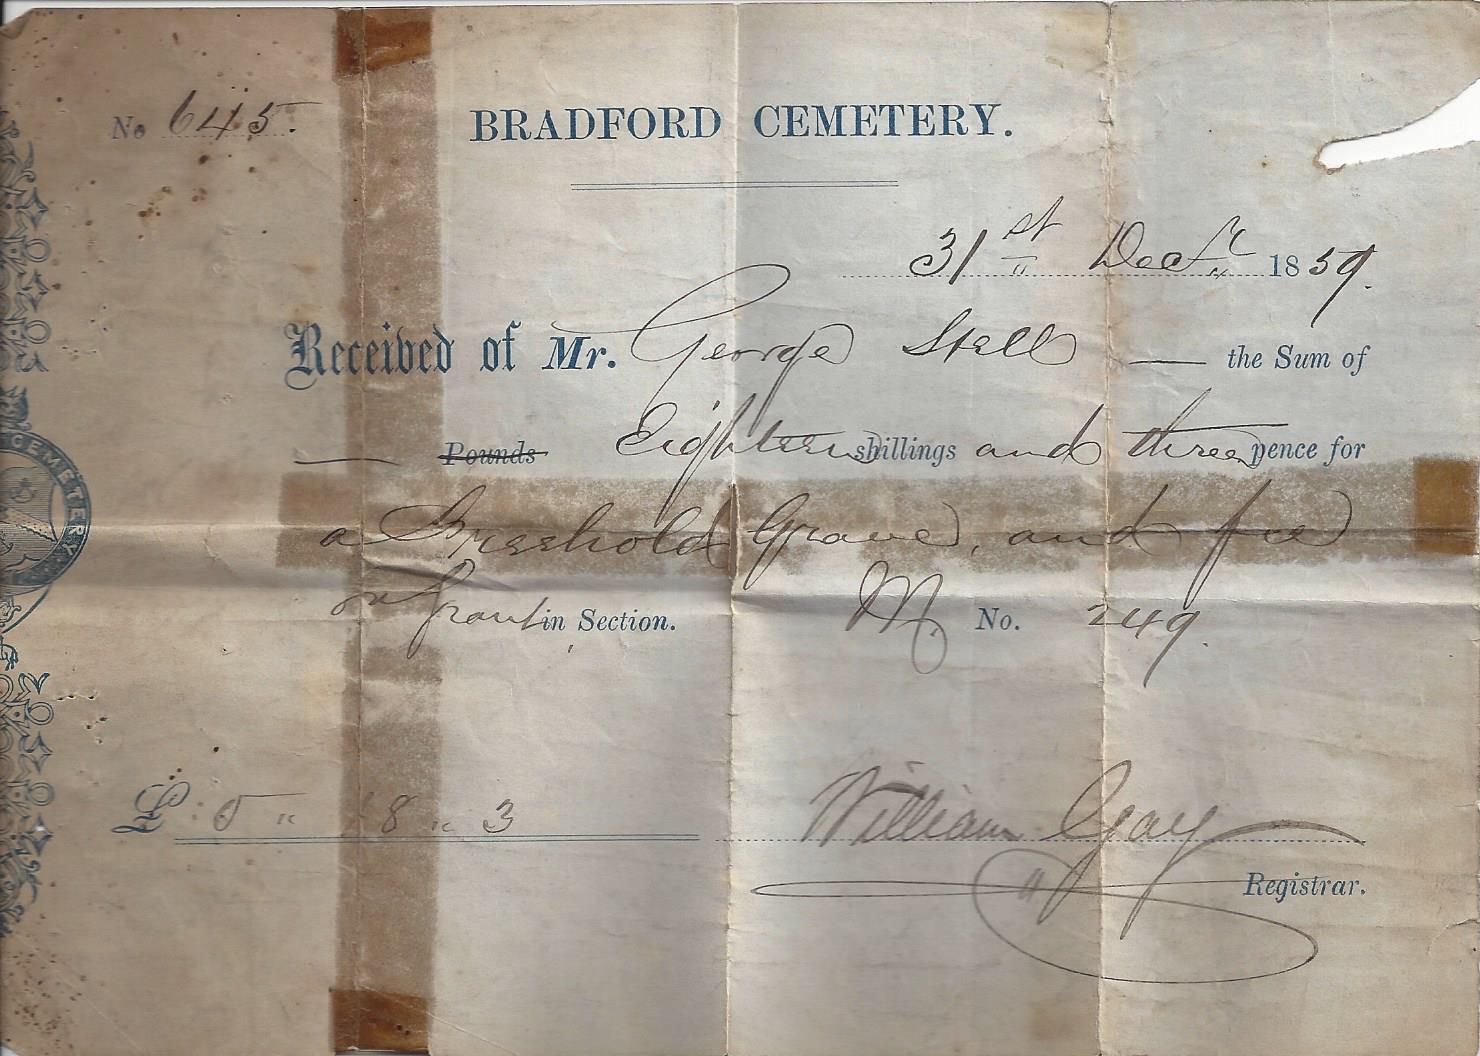 No 645.
BRADFORD CEMETERY.
31st Decr 1859.
Received of Mr. George Stell — the Sum of
— Pounds Eighteen shillings and three pence for
a Freehold Grave, and fee
on Grant in Section. M. No. 249.
£ : 0 " 18 " 3
William Gay
Registrar.
CEMETERY